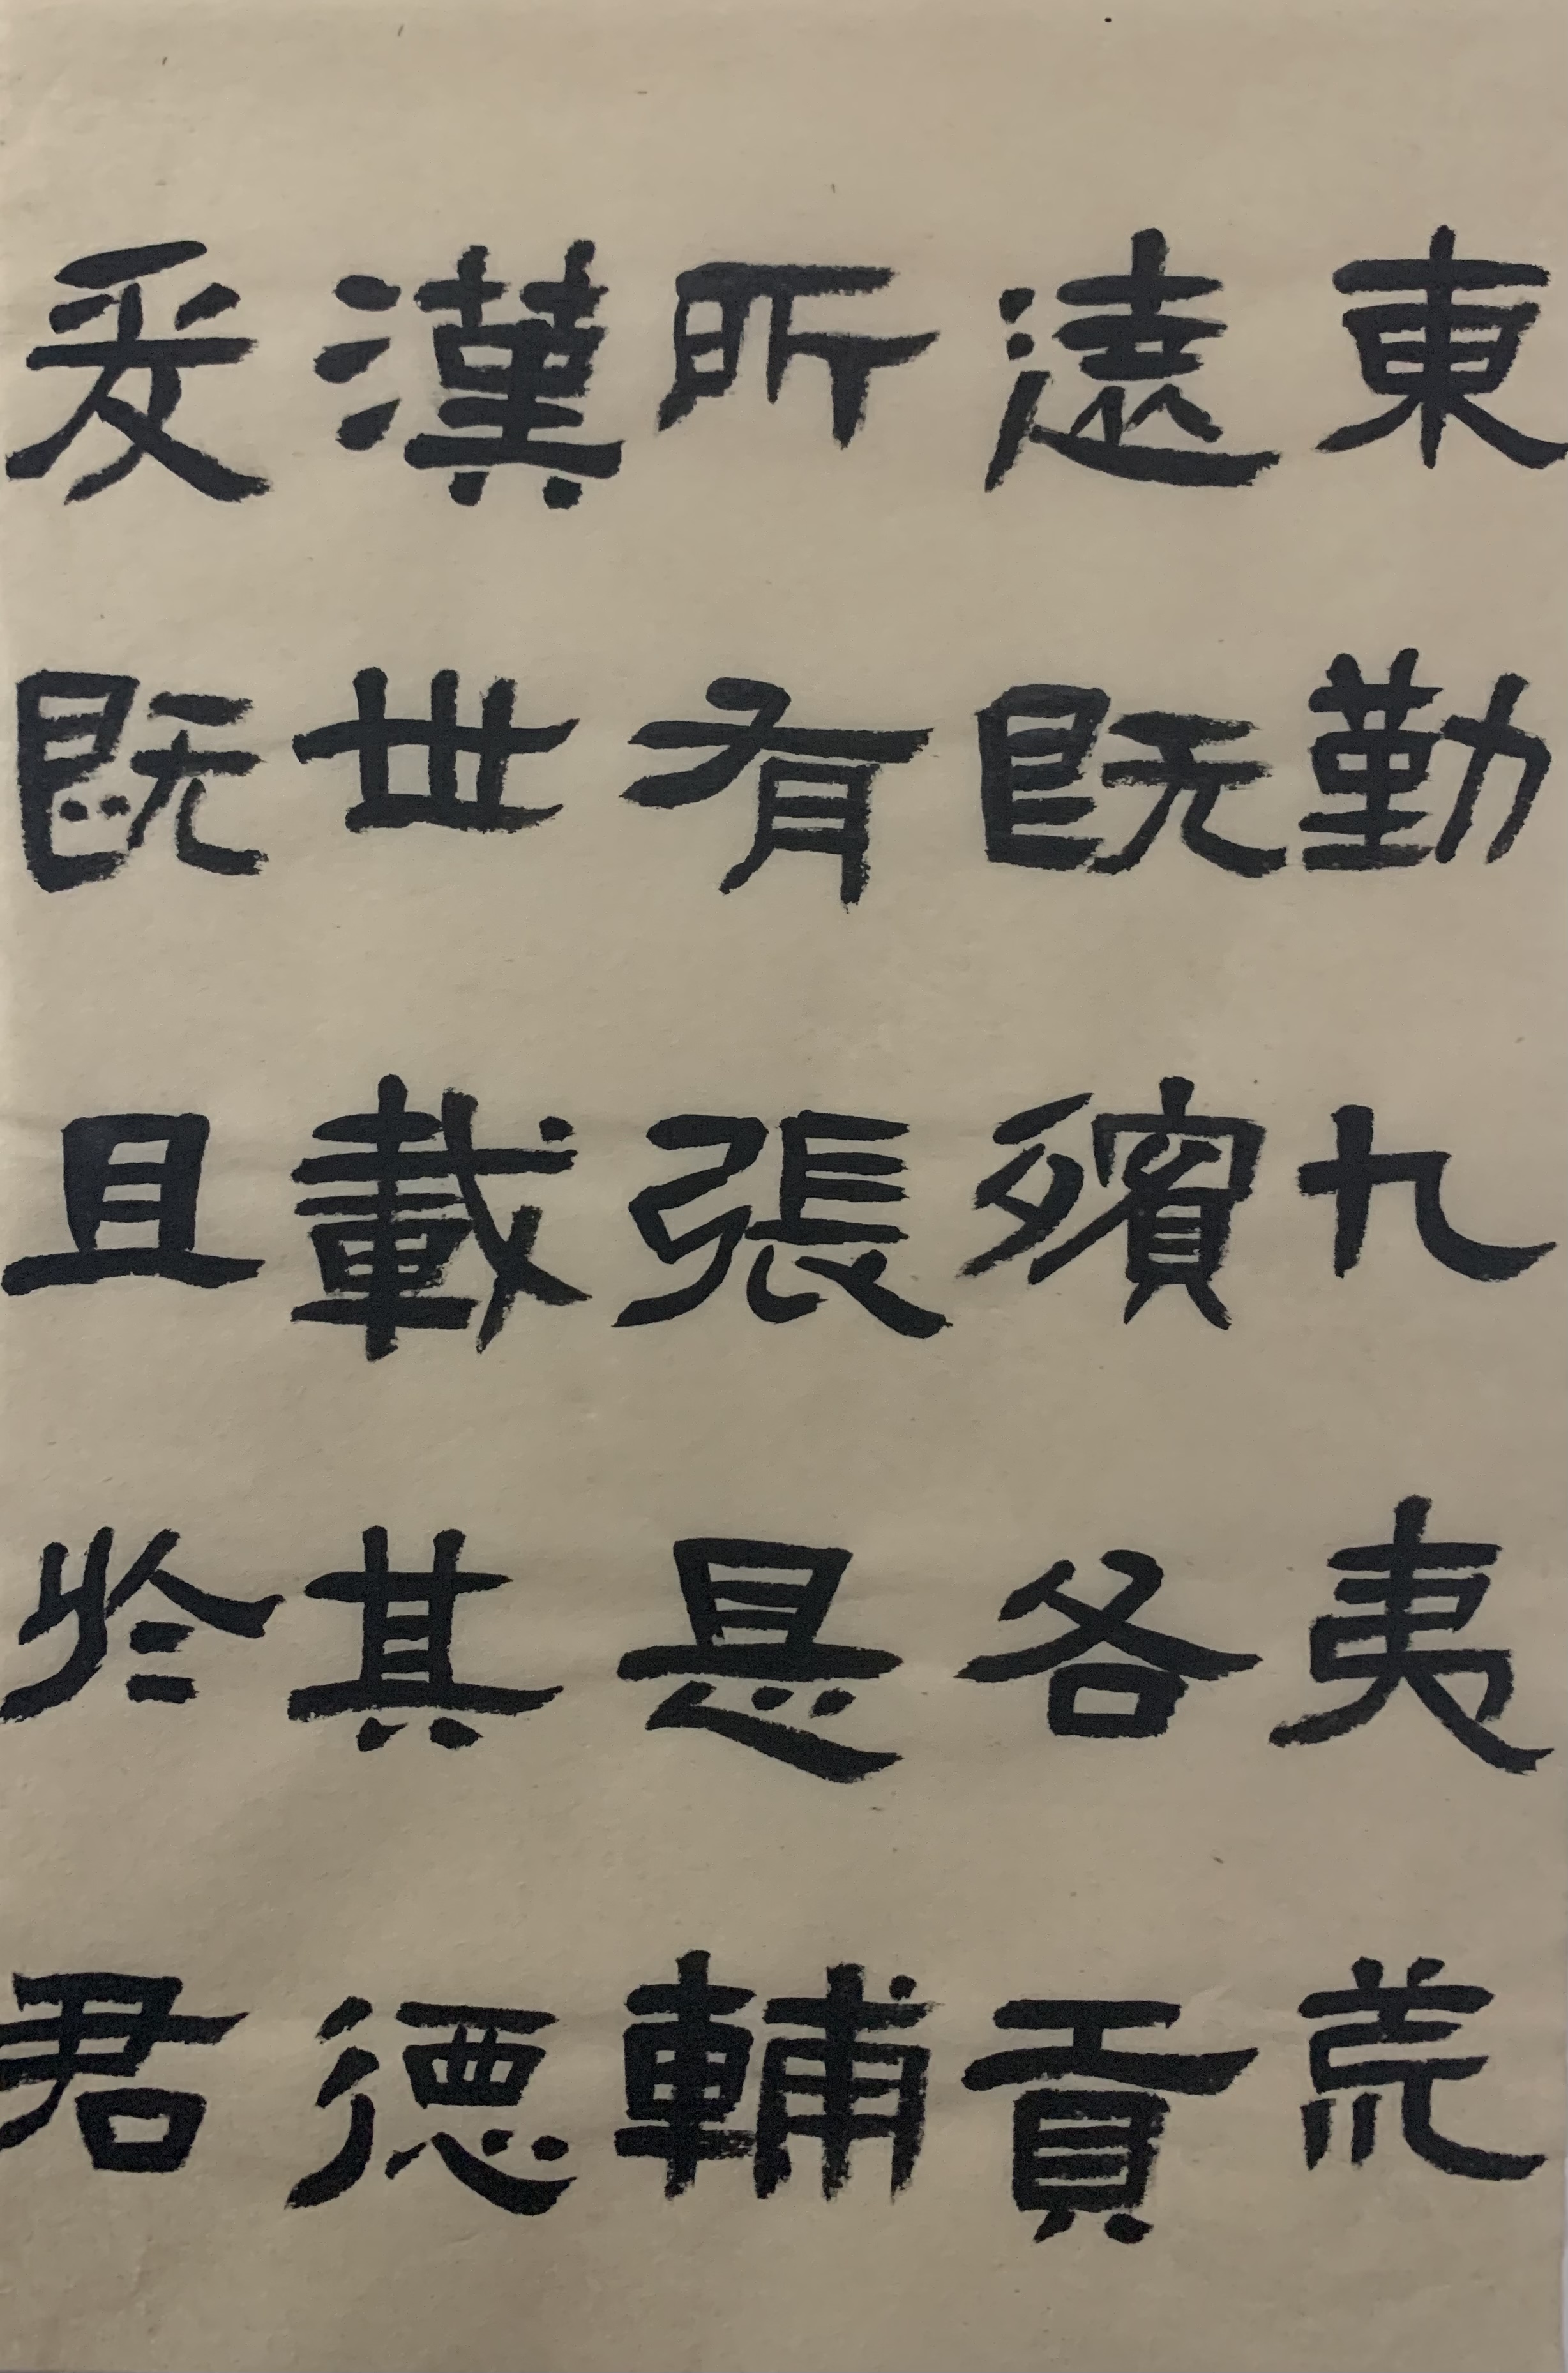 東勤九夷荒
遠既殯各貢
所有張是輔
漢世載其德
爰既且於君